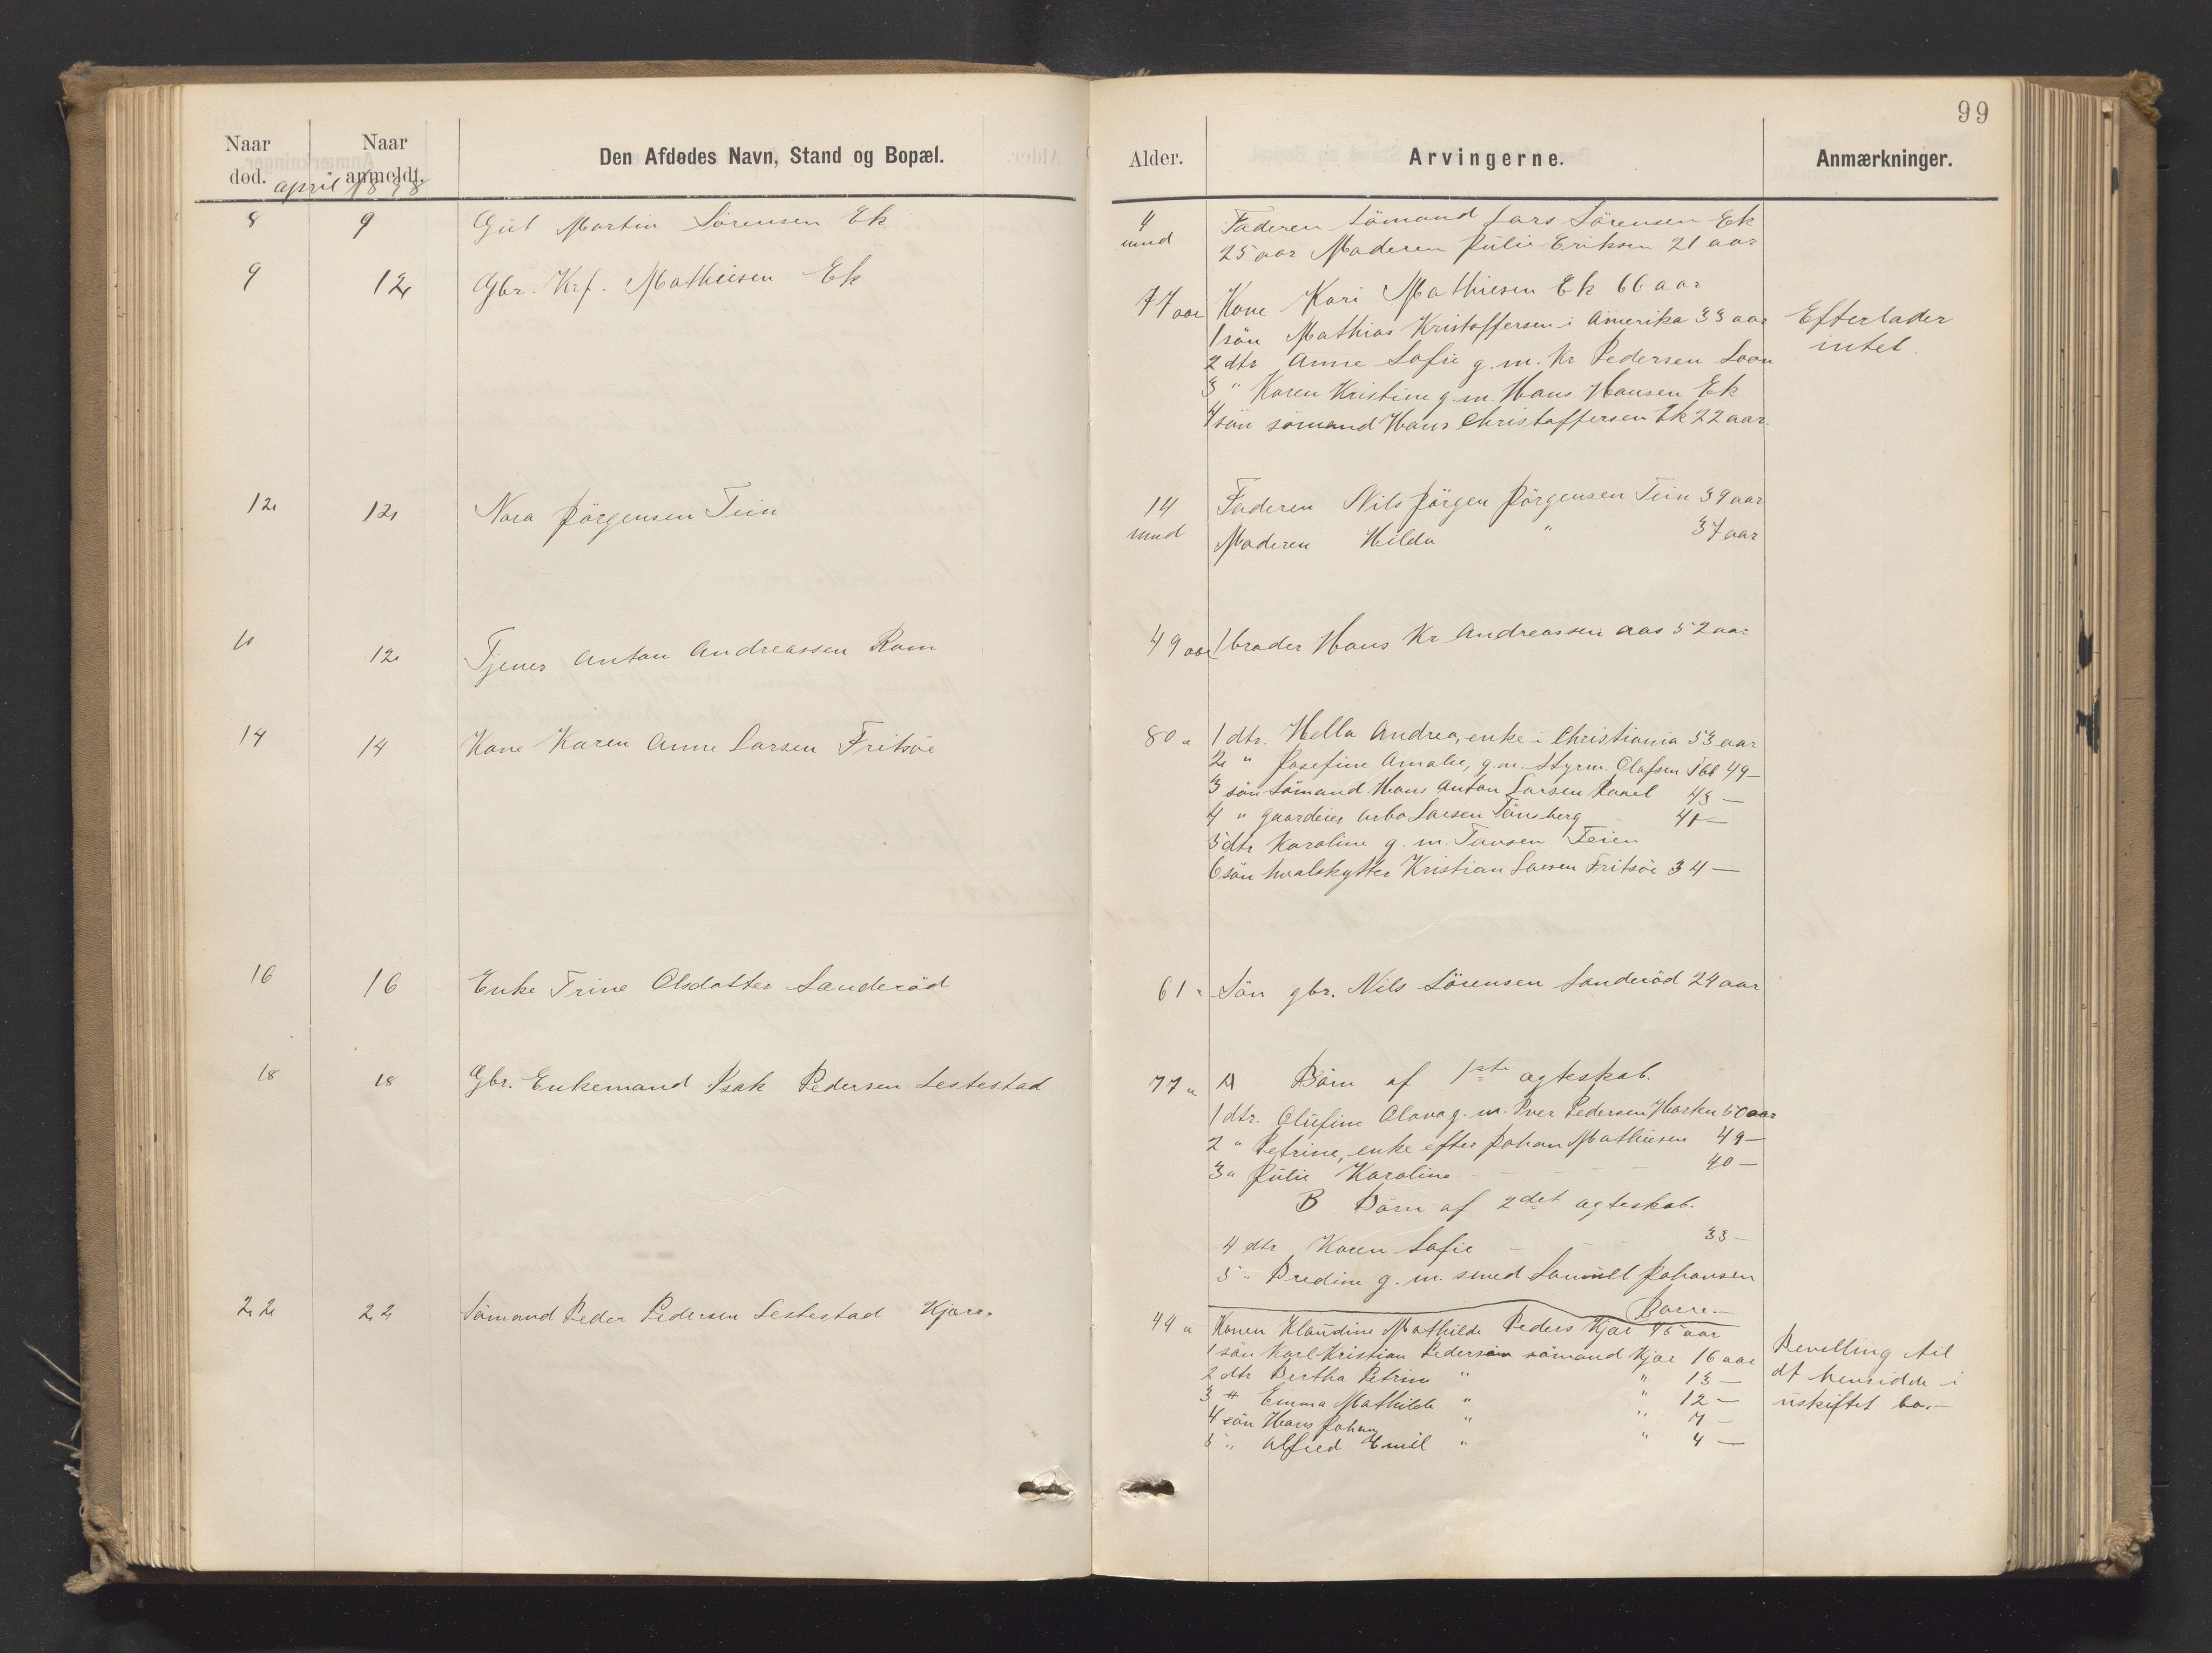 99
Naar død. Naar anmeldt. Den Afdødes Navn, Stand og Bopæl. Alder. Arvingerne. Anmærkninger.
april 1898
8 9 Gut Martin Sørensen Ek 4 mnd Faderen sømand Lars Sørensen Ek
25 aar Moderen Julie Eriksen 21 aar
9 12 Gbr. Krf. Mathiesen Ek 77 aar Kone Kari Mathiesen Ek 66 aar
1 søn Mathias Kristoffersen i Amerika 33 aar Efterlader
2 dtr Anne Sofie g. m. Kr Pedersen intet
3 " Karen Kristine g. m. Hans Hansen Ek
4 søn sømand Hans Christoffersen Ek 22 aar.
12 12 Nora Jörgensen Tein 14 mnd Faderen Nils Jörgen Jörgensen Tein 39 aar
Moderen Hilda " 37 aar
10 12 Tjener Anton Andreassen Ram 49 aar 1 broder Hans Kr Andreassen Aas 52 aar
14 14 Kone Karen Anne Larsen Fritsøe 80 " 1 dtr. Hella Andrea, enke i Christiania 53 aar
2 " Josefine Amalie, g. m. Styrm. Olafsen Tbb 49 —
3 søn Sømand Hans Anton Larsen 43 —
4 " gaardeier Arbo Larsen Tönsberg 41 —
5 dtr Karoline g. m. Tansen Teien
6 søn hvalskytter Kristian Larsen Fritsøe 34 —
16 16 Enke Trine Olsdatter Sanderöd 61 " Søn gbr. Nils Sörensen Sanderöd 24 aar
18 18 Gbr. Enkemand Isak Pedersen Lestestad 77 " A Børn af 1ste ægteskab.
1 dtr. Olufine Olava g. m. Iver Pedersen 50 aar
2 " Petrine, enke efter Johan Mathiesen 49 —
3 " Julie Karoline — — — — 40 —
B Børn af 2det ægteskab.
4 dtr Karen Sofie — — — 33 —
5 " Bredine g. m. smed Samuel Johansen
Borre. —
22 22 Sømand Peder Pedersen Lestestad Kjær. 44 " Konen Klaudine Mathilde Peders Kjær 45 aar
1 søn Karl Kristian Pedersen sømand Kjær 16 aar Bevilling til
2 dtr Bertha Petrine " " 13 — at hensidde i
3 " Emma Mathilde " " 12 — uskiftet bo. —
4 søn Hans Johan " " 7 —
5 " Alfred Emil " " 4 —